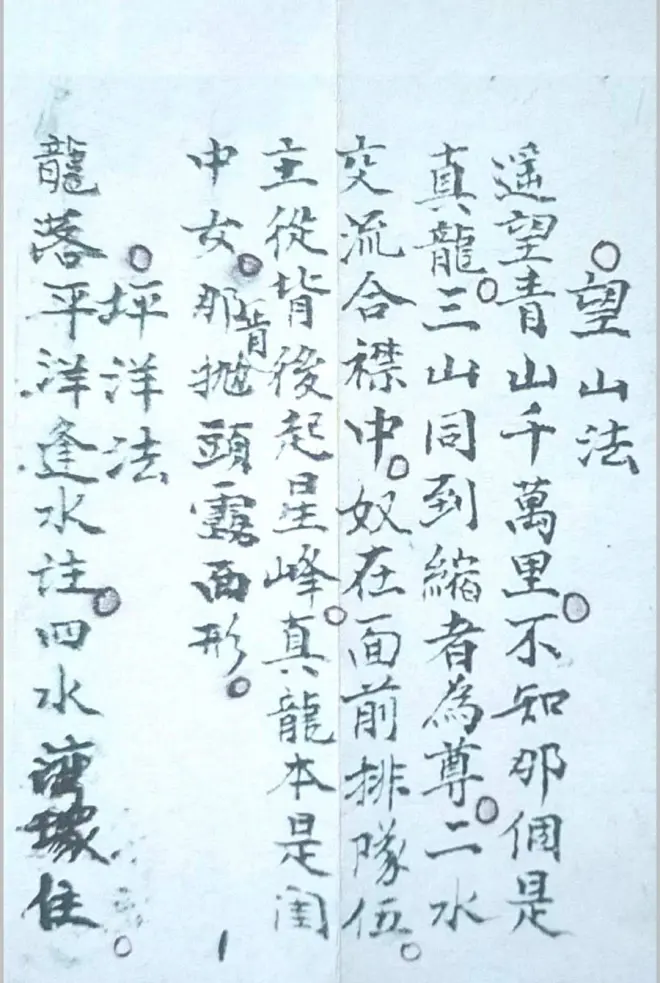 ○望山法
遥望青山千萬里○不知那個是
真龍○三山同到縮者為尊○二水
交流合襟中○奴在面前排隊伍○
主從背後起星峰○真龍本是閨
中女○那肯抛頭露面形○
○坪洋法
龍落平洋逢水註○四水灣環住○